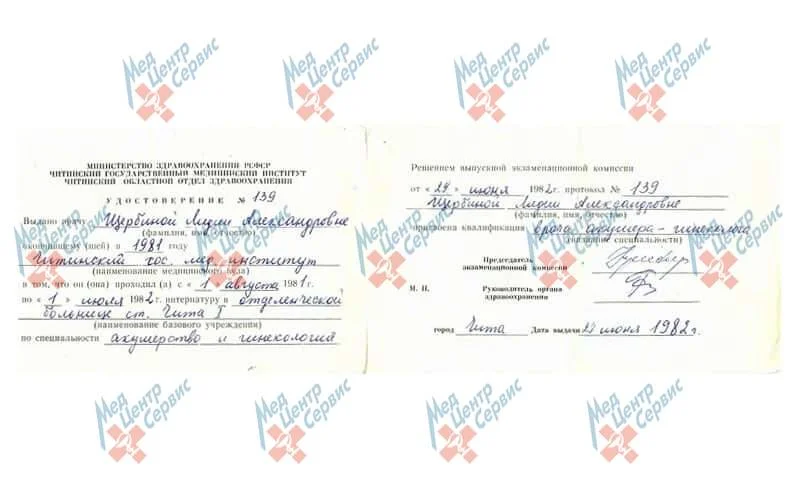 Мед Центр Сервис
Мед Центр Сервис
Мед Центр Сервис
Мед Центр Сервис
МИНИСТЕРСТВО ЗДРАВООХРАНЕНИЯ РСФСР
ЧИТИНСКИЙ ГОСУДАРСТВЕННЫЙ МЕДИЦИНСКИЙ ИНСТИТУТ
ЧИТИНСКИЙ ОБЛАСТНОЙ ОТДЕЛ ЗДРАВООХРАНЕНИЯ
УДОСТОВЕРЕНИЕ № 139
Выдано врачу Щербиной Лидии Александровне
(фамилия, имя, отчество)
окончившему (шей) в 1981 году
Читинский гос. мед. институт
(наименование медицинского вуза)
в том, что он (она) проходил (а) с « 1 августа 1981г.
по « 1 » июля 1982г. интернатуру в отделенческой
больнице ст. Чита I
(наименование базового учреждения)
по специальности акушерство и гинекология
Решением выпускной экзаменационной комиссии
от « 29 » июня 1982г. протокол № 139
Щербиной Лидии Александровне
(фамилия, имя, отчество)
присвоена квалификация врача акушера-гинеколога
(название специальности)
Председатель
экзаменационной комиссии
М. П.
Руководитель органа
здравоохранения
город Чита Дата выдачи июня 1982г.
Мед Центр Сервис
Мед Центр Сервис
Мед Центр Сервис
Мед Центр Сервис